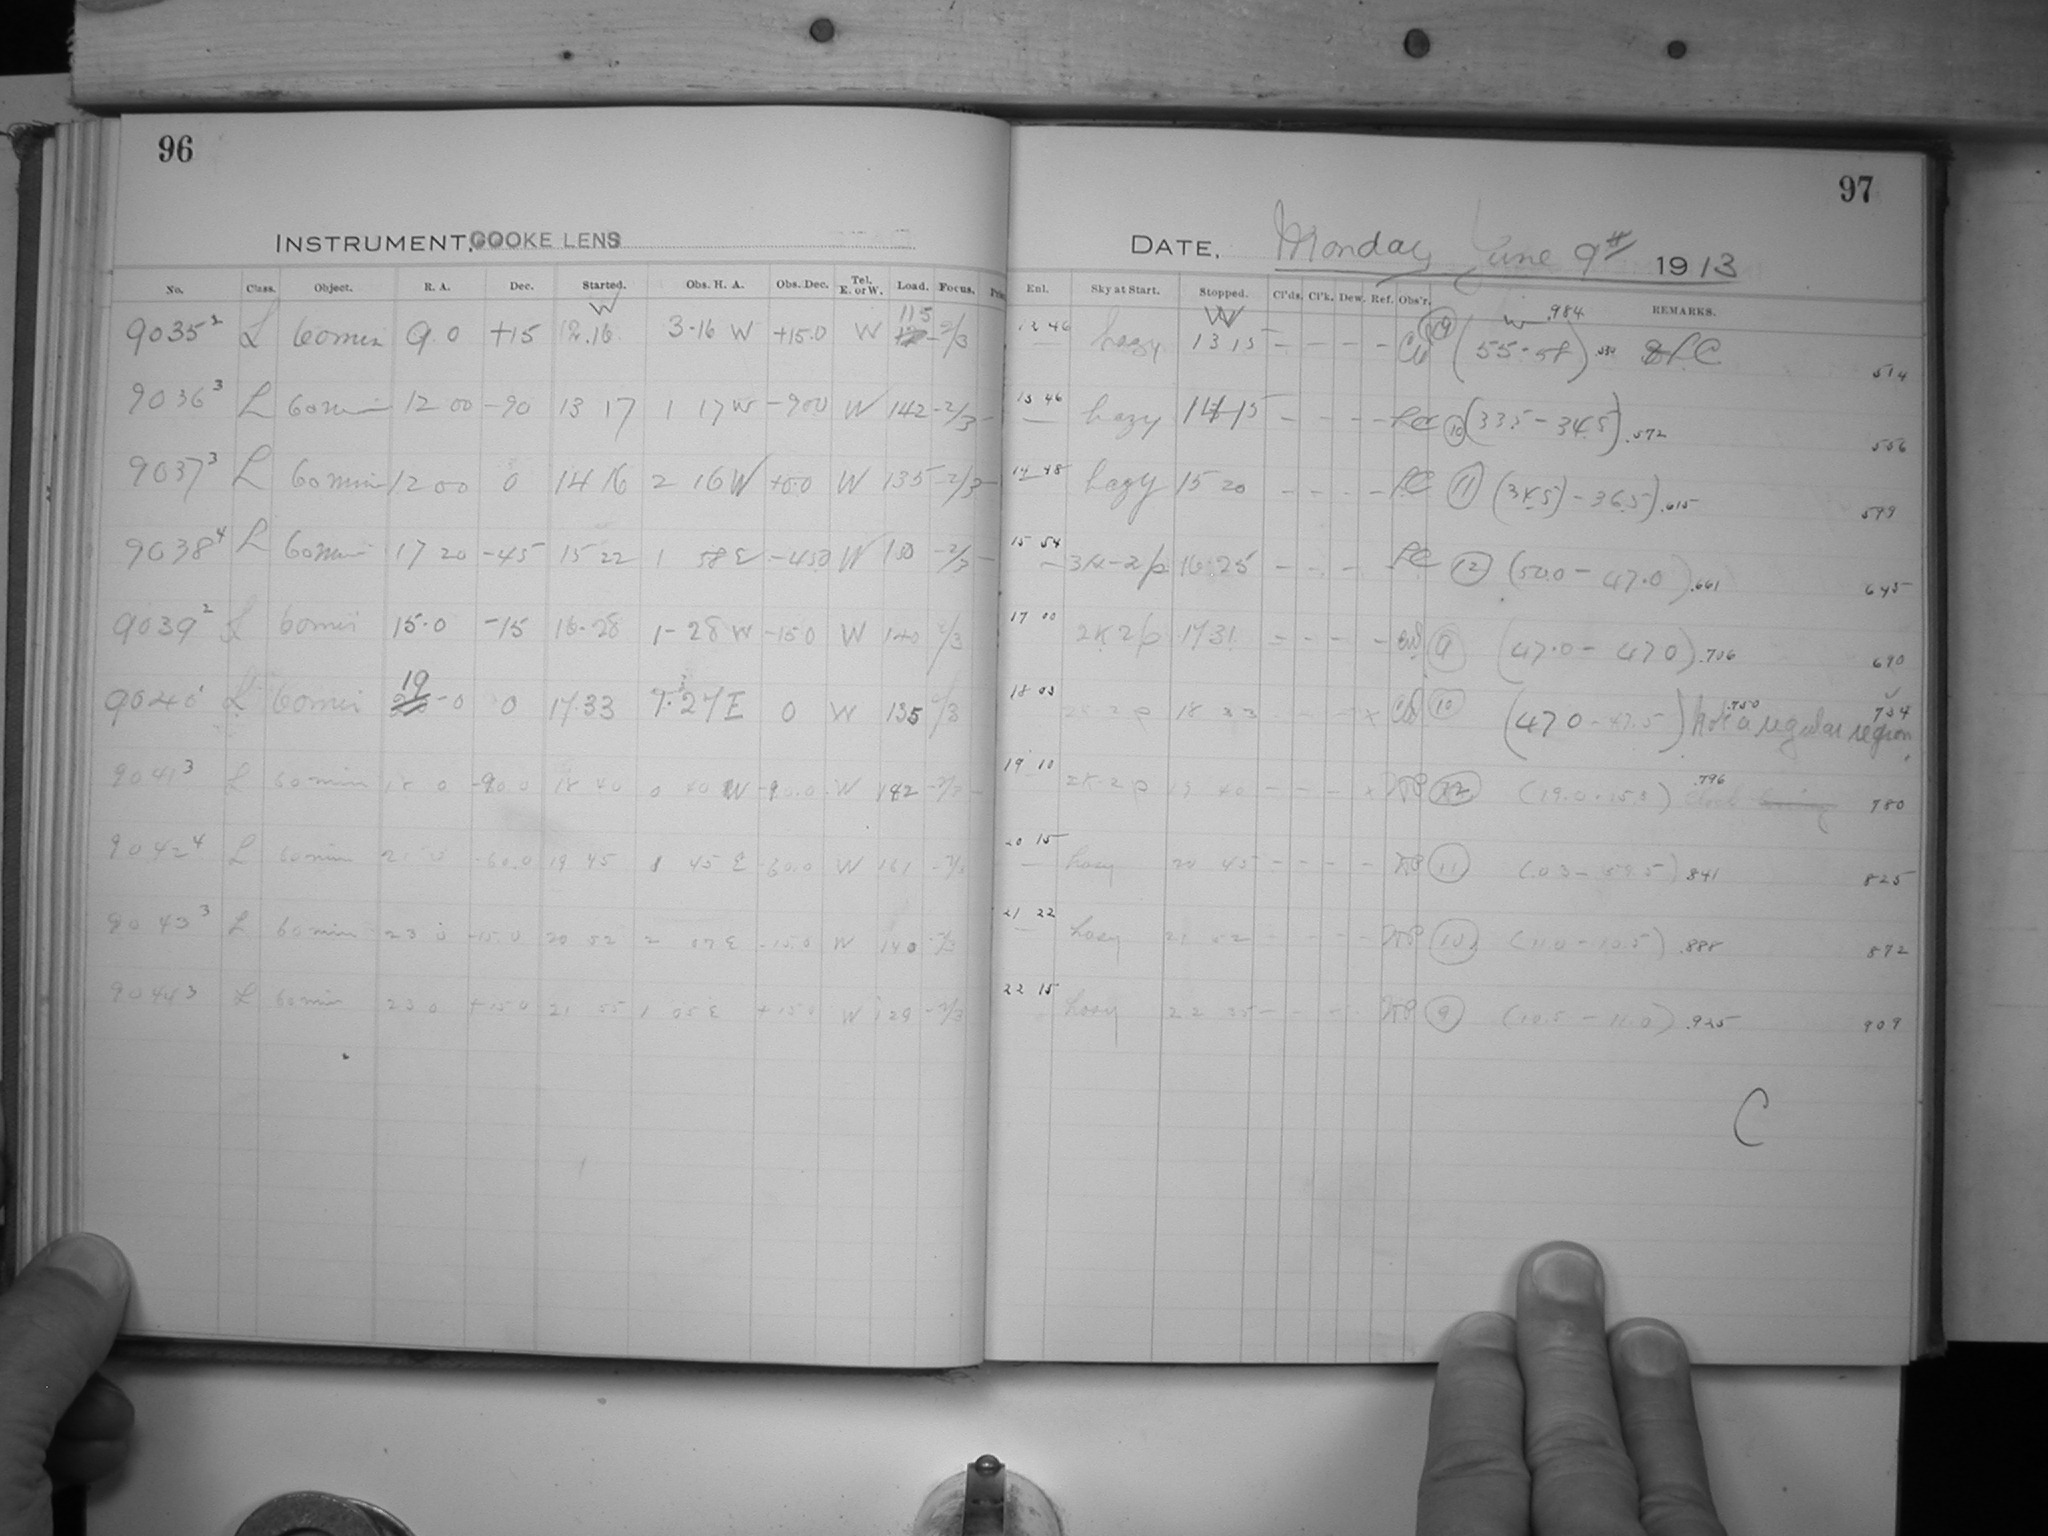 96
INSTRUMENT. COOKE LENS
No. Class. Object. R. A. Dec. Started. Obs. H. A. Obs. Dec. Tel. E. or W. Load. Focus.
W 115
9035² L 60 min 9 0 +15 12.16 3-16 W +15.0 W -2/3
9036³ L 60 min 12 00 -90 13 17 1 17 W -90.0 W 142 -2/3 -
9037³ L 60 min 12 00 0 14 16 2 16 W +0.0 W 135 -2/3 -
9038⁴ L 60 min 17 20 -45 15 22 1 58 E -45.0 W 150 -2/3 -
9039² L 60 min 15.0 -15 16-28 1-28 W -15.0 W 140 2/3
9040 L 60 min 19 -0 0 17.33 1.27 E 0 W 135 2/3
9041³ L 60 min 18 0 -90.0 18 40 0 40 W -90.0 W 142 -2/3 -
9042⁴ L 60 min 21 0 -60.0 19 45 1 45 E -60.0 W 161 -2/3
9043³ L 60 min 23 0 -15.0 20 52 2 07 E -15.0 W 140 -2/3
9044³ L 60 min 23 0 +15.0 21 55 1 05 E +15.0 W 129 -2/3
97
DATE. Monday June 9th 1913
Enl. Sky at Start. Stopped. Cl'ds. Cl'k. Dew. Ref. Obs'r. REMARKS.
W .984
12 46 hazy 13 15 - - - - (55-58) LC 514
13 46 hazy 14 15 - - - - LC 10 (33.5-34.5) .572 556
14 48 hazy 15 20 - - - - LC 11 (34.5)-36.5) .615 599
15 54 3k-2p 16.25 - - - - LC 12 (50.0-47.0) .661 645
17 00 2k 2p 17 31 - - - - 9 (47.0-47.0) .706 690
18 03 2k-2p 18 33 - - - x 10 (47.0-47.5) .750 Not a regular region 734
19 10 2k-2p 19 40 - - - x 12 (19.0-15.5) .796 780
20 15 hazy 20 45 - - - - 11 (.03-59.5) .841 825
21 22 hazy 21 52 - - - - 10 (11.0-10.5) .888 872
22 15 hazy 22 55 - - - - 9 (10.5-11.0) .925 909
C